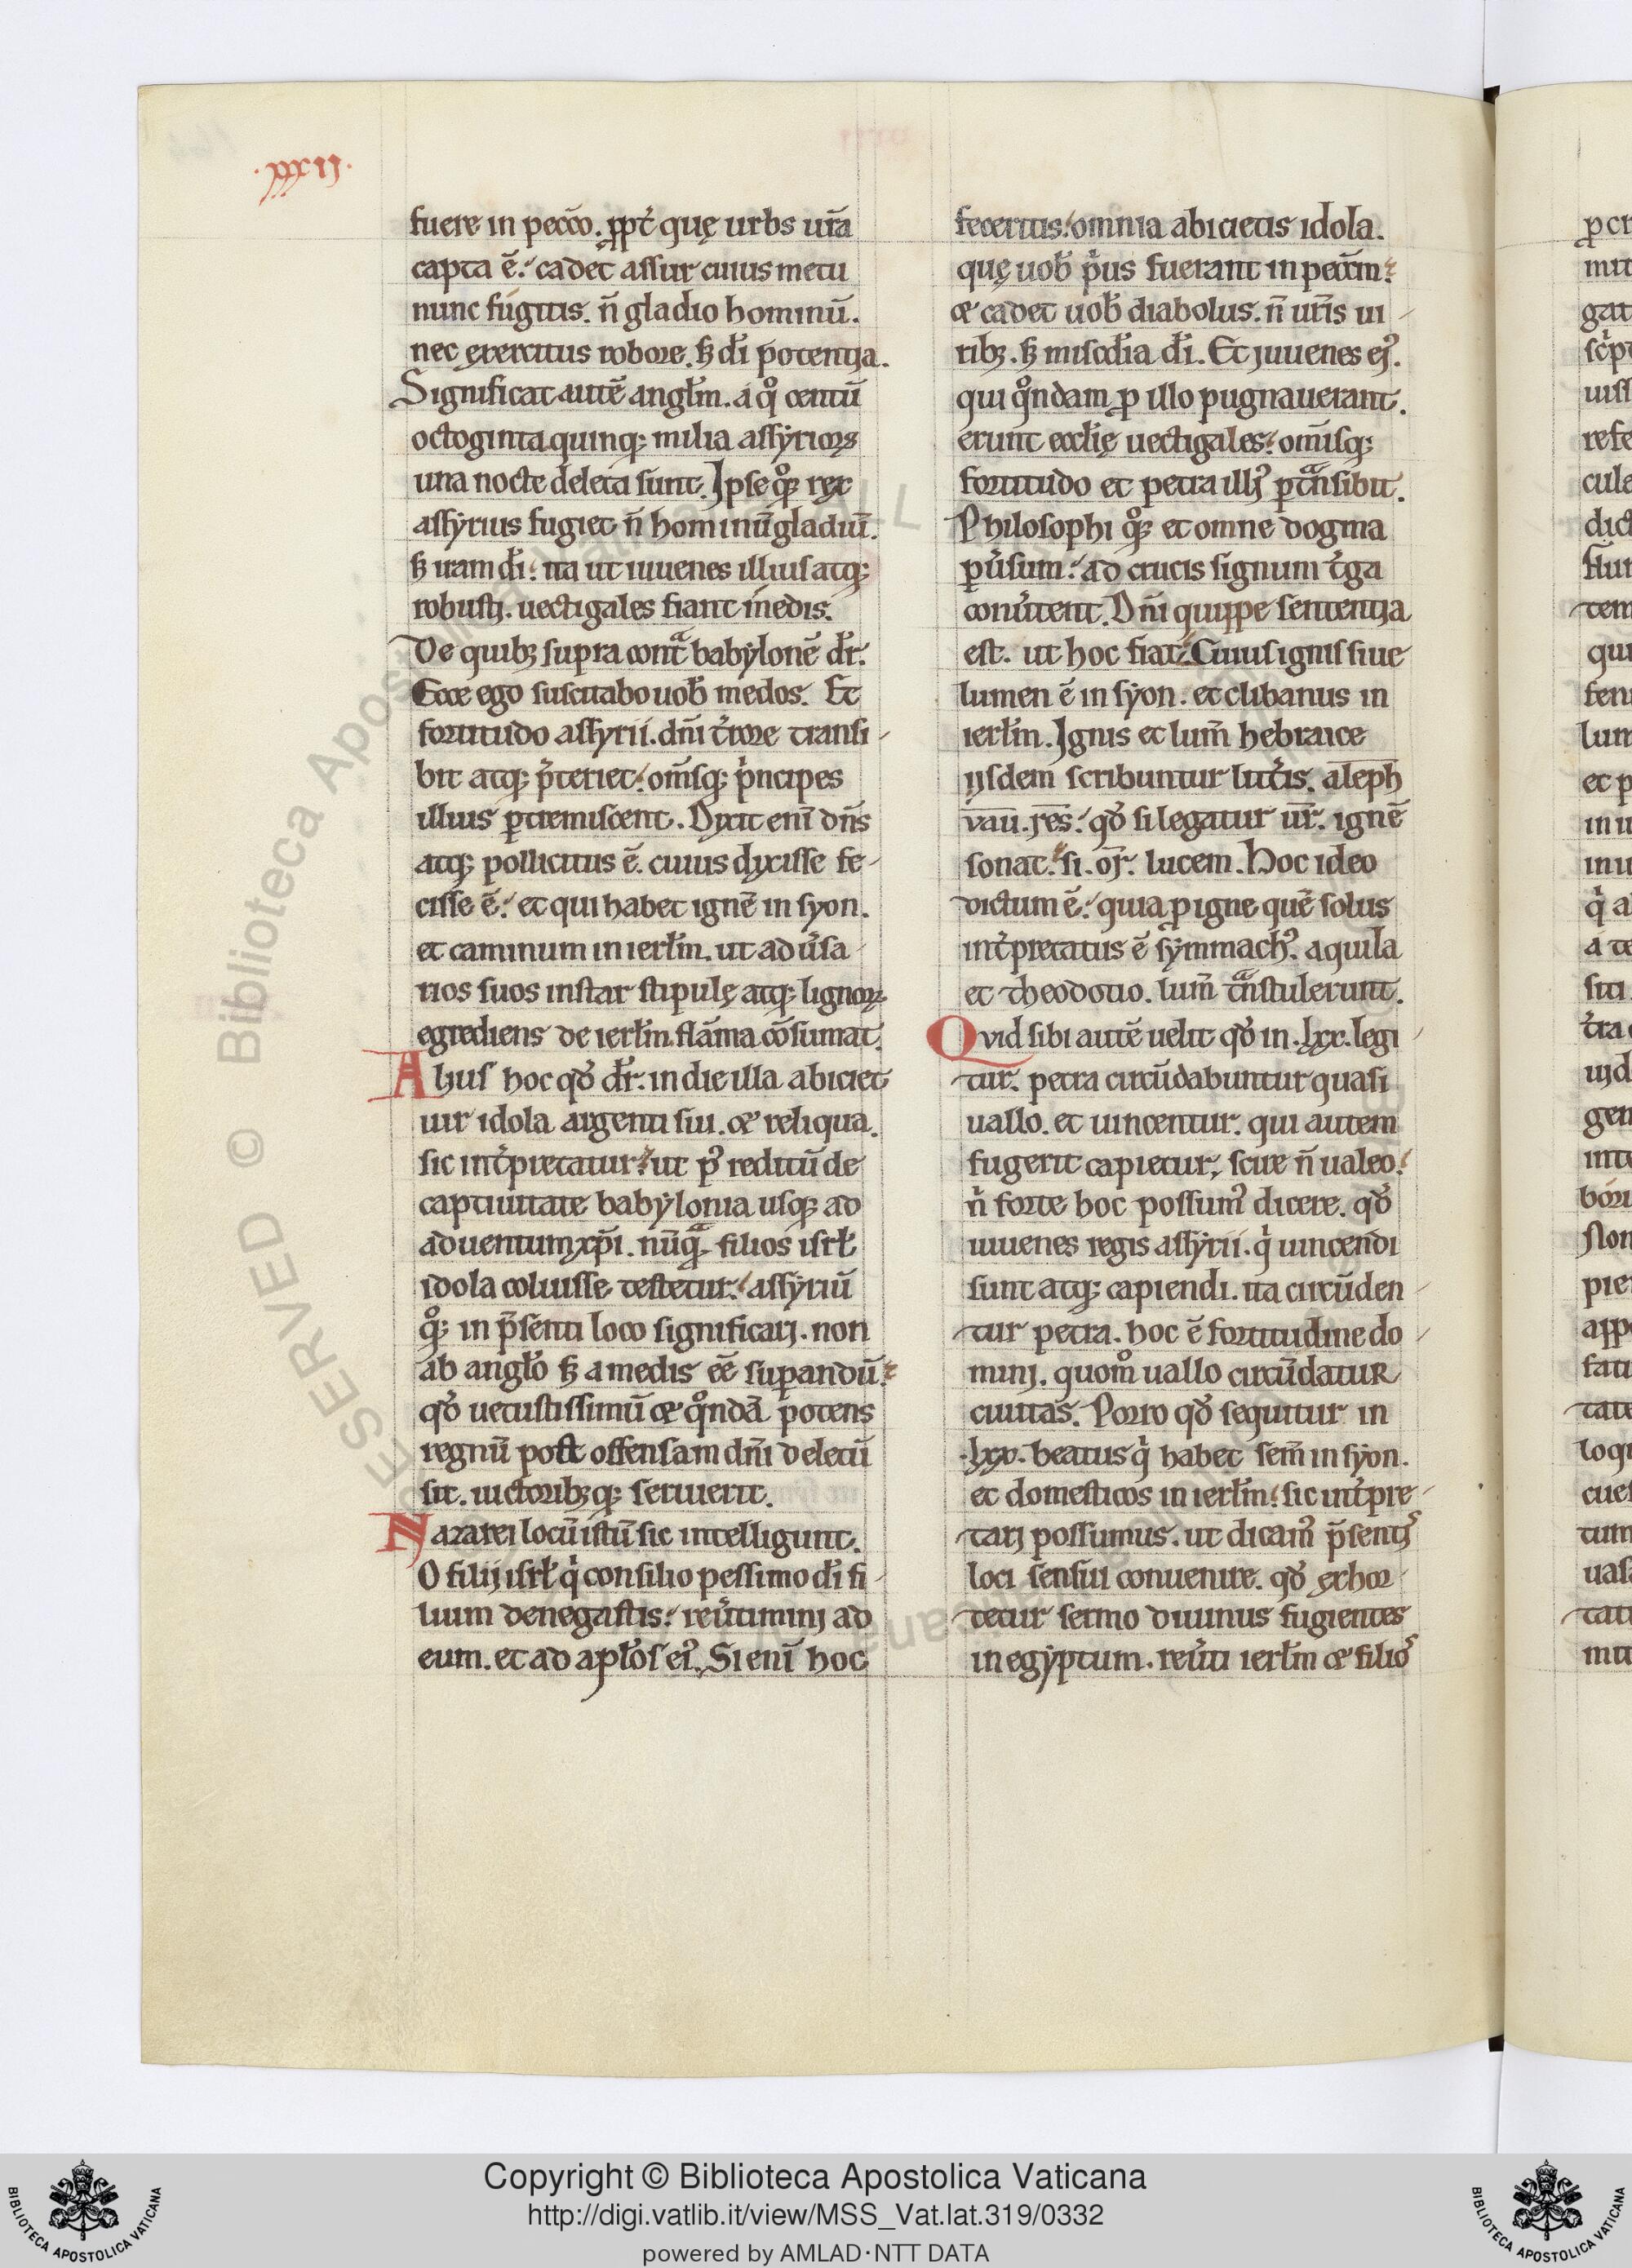 .xxxii.
fuere in pecc̄o. ꝓpt̓ quę urbs ur̄a
capta ē. cadet assur cuius metu
nunc fugitis. n̄ gladio hominū.
nec exercitus robore. sꝫ dī potentia.
Significat autē angl̄m. a qͦ centū
octoginta quinq; milia assẏrioꝝ
una nocte deleta sunt. Ipse qͦꝫ rex
assẏrius fugiet n̄ hominū gladiū.
sꝫ iram dī. ita ut iuuenes illius atq;
robusti. uectigales fiant medis.
De quibꝫ supra contͣ babẏlonē dr̄.
Ecce ego suscitabo uob̄ medos. Et
fortitudo assyrii. dn̄i t̓rore transi-
bit atq; p̄teriet. om̄sq; pͥncipes
illius ꝑtremiscent. Dixit eni dn̄s
atq; pollicitus ē. cuius dixisse fe-
cisse ē. et qui habet ignē in syon.
et caminum in ierl̄m. ut adu̓sa
rios suos instar stipulę atq; lignoꝝ
egrediens de ierl̄m flāma cōsumat.
Alius hoc qd̓ dr̄. in die illa abiciet
uir idola argenti sui. & reliqua.
sic int̓pretatur. ut pꝰ reditū de
captiuitate babẏlonia usq; ad
aduentum xp̄i. nūqͣ filios isrl̄
idola coluisse testetur. assẏriū
qͦ; in p̄senti loco significari. non
ab angl̄o sꝫ a medis eē suꝑandū.
qd̓ uetustissimū & qͦndā potens
regnū post offensam dn̄i deletū
sit. uictoribꝫq; seruierit.
Nazarei locū istū sic intelligunt.
O filii isrl̄ qͥ consilio pessimo dī fi-
lium denegastis. reu̓timini ad
eum. et ad apl̄os eiꝰ. Si eni hoc
feceritis. omnia abicietis idola.
quę uob̄ pͥus fuerant in pecc̄m.
& cadet uob̄ diabolus. n̄ ur̄is ui-
ribꝫ. sꝫ miscd̄ia dī. Et iuuenes eiꝰ.
qui qͦndam ꝓ illo pugnauerant.
erunt eccl̄ię uectigales. om̄isq;
fortitudo et petra illiꝰ ꝑtͣnsibit.
Philosophi qͦꝫ et omne dogma
ꝑu̓sum. ad crucis signum t̓ga
conu̓tent. Dn̄i quippe sententia
est. ut hoc fiat. Cuius ignis siue
lumen ē in sẏon. et clibanus in
ierl̄m. Ignis et lum̄ hebraice
iisdem scribuntur litt̓is. aleph
vau. res. qd̓ si legatur ur̄. ignē
sonat. si. or̄. lucem. Hoc ideo
dictum ē. quia ꝓ igne quē solus
int̓pretatus ē sẏmmachꝰ. aquila
et theodotio. lum̄ tͣnstulerunt.
Qvid sibi autē uelit qd̓ in. lxx. legi-
tur. petra circūdabuntur quasi
uallo. et uincentur. qui autem
fugerit capietur, scire n̄ ualeo.
nͥ forte hoc possumꝰ dicere. qd̓
iuuenes regis assẏrii. qͥ uincendi
sunt atq; capiendi. ita circūden-
tur petra. hoc ē fortitudine do-
mini. quomͦ uallo circūdatur
ciuitas. Porro qd̓ sequitur in
.lxx. beatus qͥ habet sem̄ in sẏon.
et domesticos in ierl̄m. sic int̓pre-
tari possumus. ut dicamꝰ p̄sentiˢ
loci sensui conuenire. qd̓ exhor-
tetur sermo diuinus fugientes
in egẏptum. reu̓ti ierl̄m & filioˢ
Copyright © Biblioteca Apostolica Vaticana
http://digi.vatlib.it/view/MSS_Vat.lat.319/0332
powered by AMLAD·NTT DATA
BIBLIOTECA APOSTOLICA VATICANA
BIBLIOTECA APOSTOLICA VATICANA